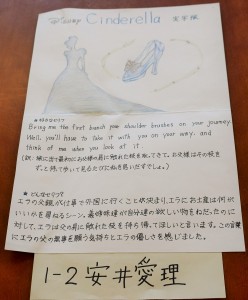 Disney Cinderella 実写版
★好きなセリフ
Bring me the first branch your shoulder brushes on your journey.
Well, you'll have to take it with you on your way, and
think of me when you look at it.
(訳:旅に出て最初にお父様の肩に触れた枝を取ってきて。お父様はその枝を
ずっと持って歩いて見るたびに私を思い出すでしょ。)
★どんなセリフ?
エラの父親が仕事で外国に行くことが決まり、エラにお土産は何が
いいかを尋ねるシーン。義姉妹達が自分達の欲しい物をねだったのに
対して、エラは父の肩に触れた枝を持ち帰ってほしいと言います。この言葉
にエラの父の無事を願う気持ちとエラの優しさを感じました。
1-2 安井愛理